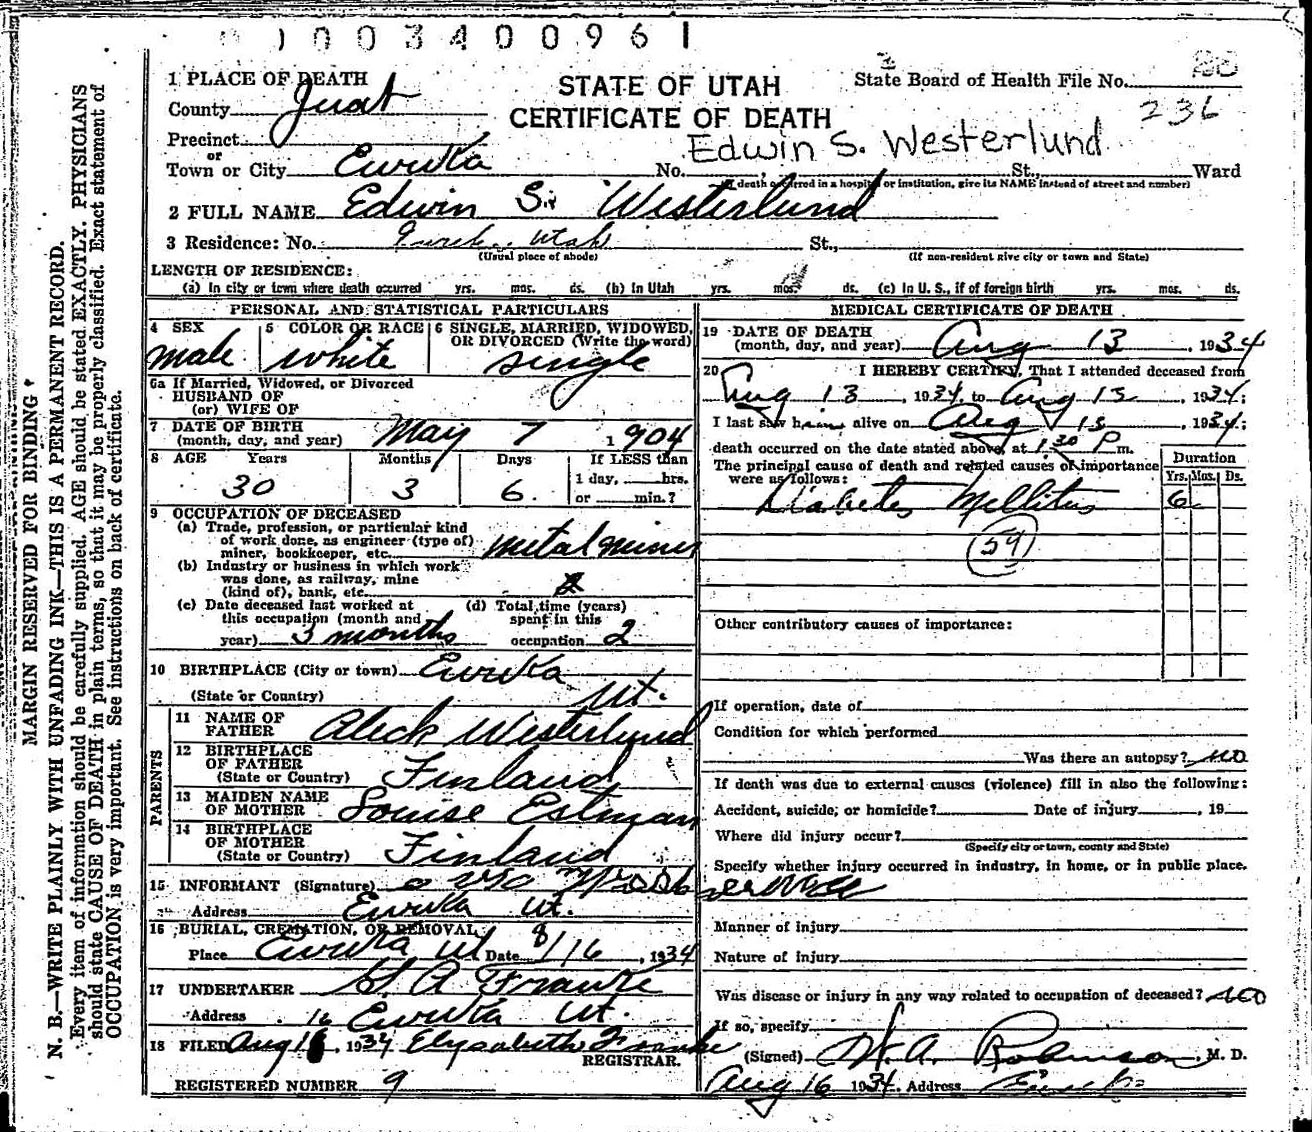 1003400961
1 PLACE OF DEATH
STATE OF UTAH
CERTIFICATE OF DEATH
State Board of Health File No. 80
236
County Juab
Precinct
or
Town or City Eureka No. St., Ward
Edwin S. Westerlund
(If death occurred in a hospital or institution, give its NAME instead of street and number)
2 FULL NAME Edwin S. Westerlund
3 Residence: No. Eureka Utah St.,
(Usual place of abode) (If non-resident give city or town and State)
LENGTH OF RESIDENCE:
(a) In city or town where death occurred yrs. mos. ds. (b) In Utah yrs. mos. ds. (c) In U. S., if of foreign birth yrs. mos. ds.
PERSONAL AND STATISTICAL PARTICULARS
4 SEX male
5 COLOR OR RACE white
6 SINGLE, MARRIED, WIDOWED, OR DIVORCED (Write the word) single
6a If Married, Widowed, or Divorced
HUSBAND OF
(or) WIFE OF
7 DATE OF BIRTH
(month, day, and year) May 7 1904
8 AGE Years Months Days If LESS than
30 3 6 1 day, hrs.
or min.?
9 OCCUPATION OF DECEASED
(a) Trade, profession, or particular kind
of work done, as engineer (type of)
miner, bookkeeper, etc. metal miner
(b) Industry or business in which work
was done, as railway, mine
(kind of), bank, etc.
(c) Date deceased last worked at
this occupation (month and
year) 3 months
(d) Total time (years)
spent in this
occupation 2
10 BIRTHPLACE (City or town) Eureka
(State or Country) Ut.
PARENTS
11 NAME OF
FATHER Aleck Westerlund
12 BIRTHPLACE
OF FATHER
(State or Country) Finland
13 MAIDEN NAME
OF MOTHER Louise Estman
14 BIRTHPLACE
OF MOTHER
(State or Country) Finland
15 INFORMANT (Signature)
Address Eureka Ut.
16 BURIAL, CREMATION, OR REMOVAL
Place Eureka Ut Date 8/16, 1934
17 UNDERTAKER
Address Eureka Ut.
18 FILED Aug 16, 1934 Elysabeth Franke
REGISTRAR.
REGISTERED NUMBER 9
MEDICAL CERTIFICATE OF DEATH
19 DATE OF DEATH
(month, day, and year) Aug 13, 1934
20 I HEREBY CERTIFY, That I attended deceased from
Aug 13, 1934, to Aug 13, 1934;
I last saw him alive on Aug 13, 1934;
death occurred on the date stated above, at 1:30 P m.
The principal cause of death and related causes of importance
were as follows:
Duration
Yrs. Mos. Ds.
Diabetes Mellitus 6
59
Other contributory causes of importance:
If operation, date of
Condition for which performed
Was there an autopsy? no
If death was due to external causes (violence) fill in also the following:
Accident, suicide, or homicide? Date of injury, 19
Where did injury occur?
(Specify city or town, county and State)
Specify whether injury occurred in industry, in home, or in public place.
Manner of injury
Nature of injury
Was disease or injury in any way related to occupation of deceased? no
If so, specify
(Signed) H. A. Robinson, M. D.
Aug 16 1934. Address Eureka
MARGIN RESERVED FOR BINDING
N. B.—WRITE PLAINLY WITH UNFADING INK—THIS IS A PERMANENT RECORD.
Every item of information should be carefully supplied. AGE should be stated EXACTLY. PHYSICIANS
should state CAUSE OF DEATH in plain terms, so that it may be properly classified. Exact statement of
OCCUPATION is very important. See instructions on back of certificate.